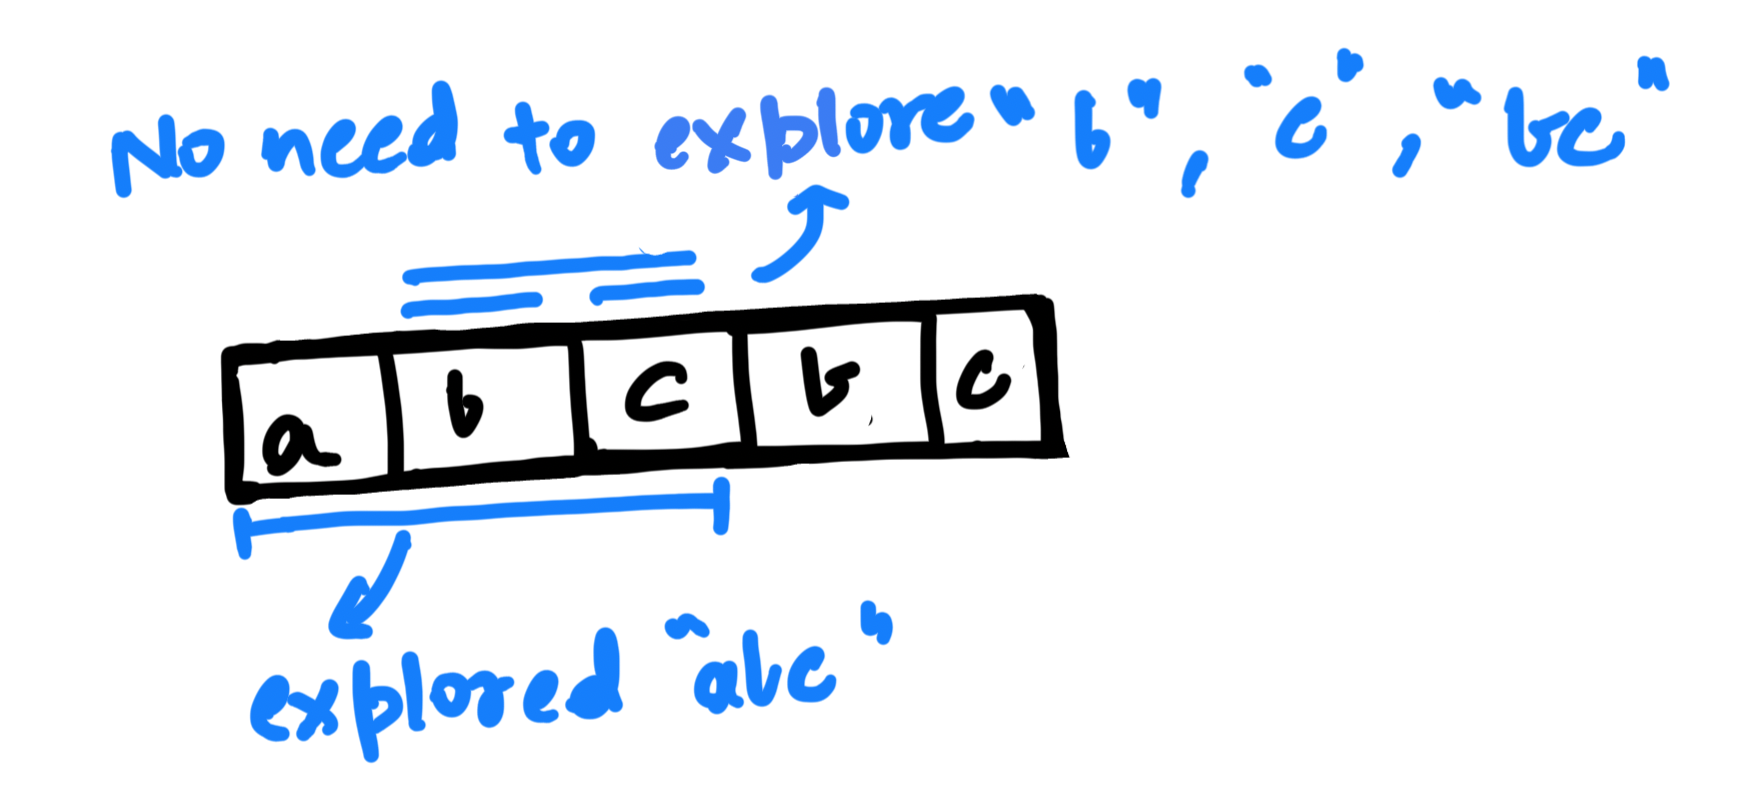 No need to explore "b", "c", "bc"
a b c b c
explored "abc"